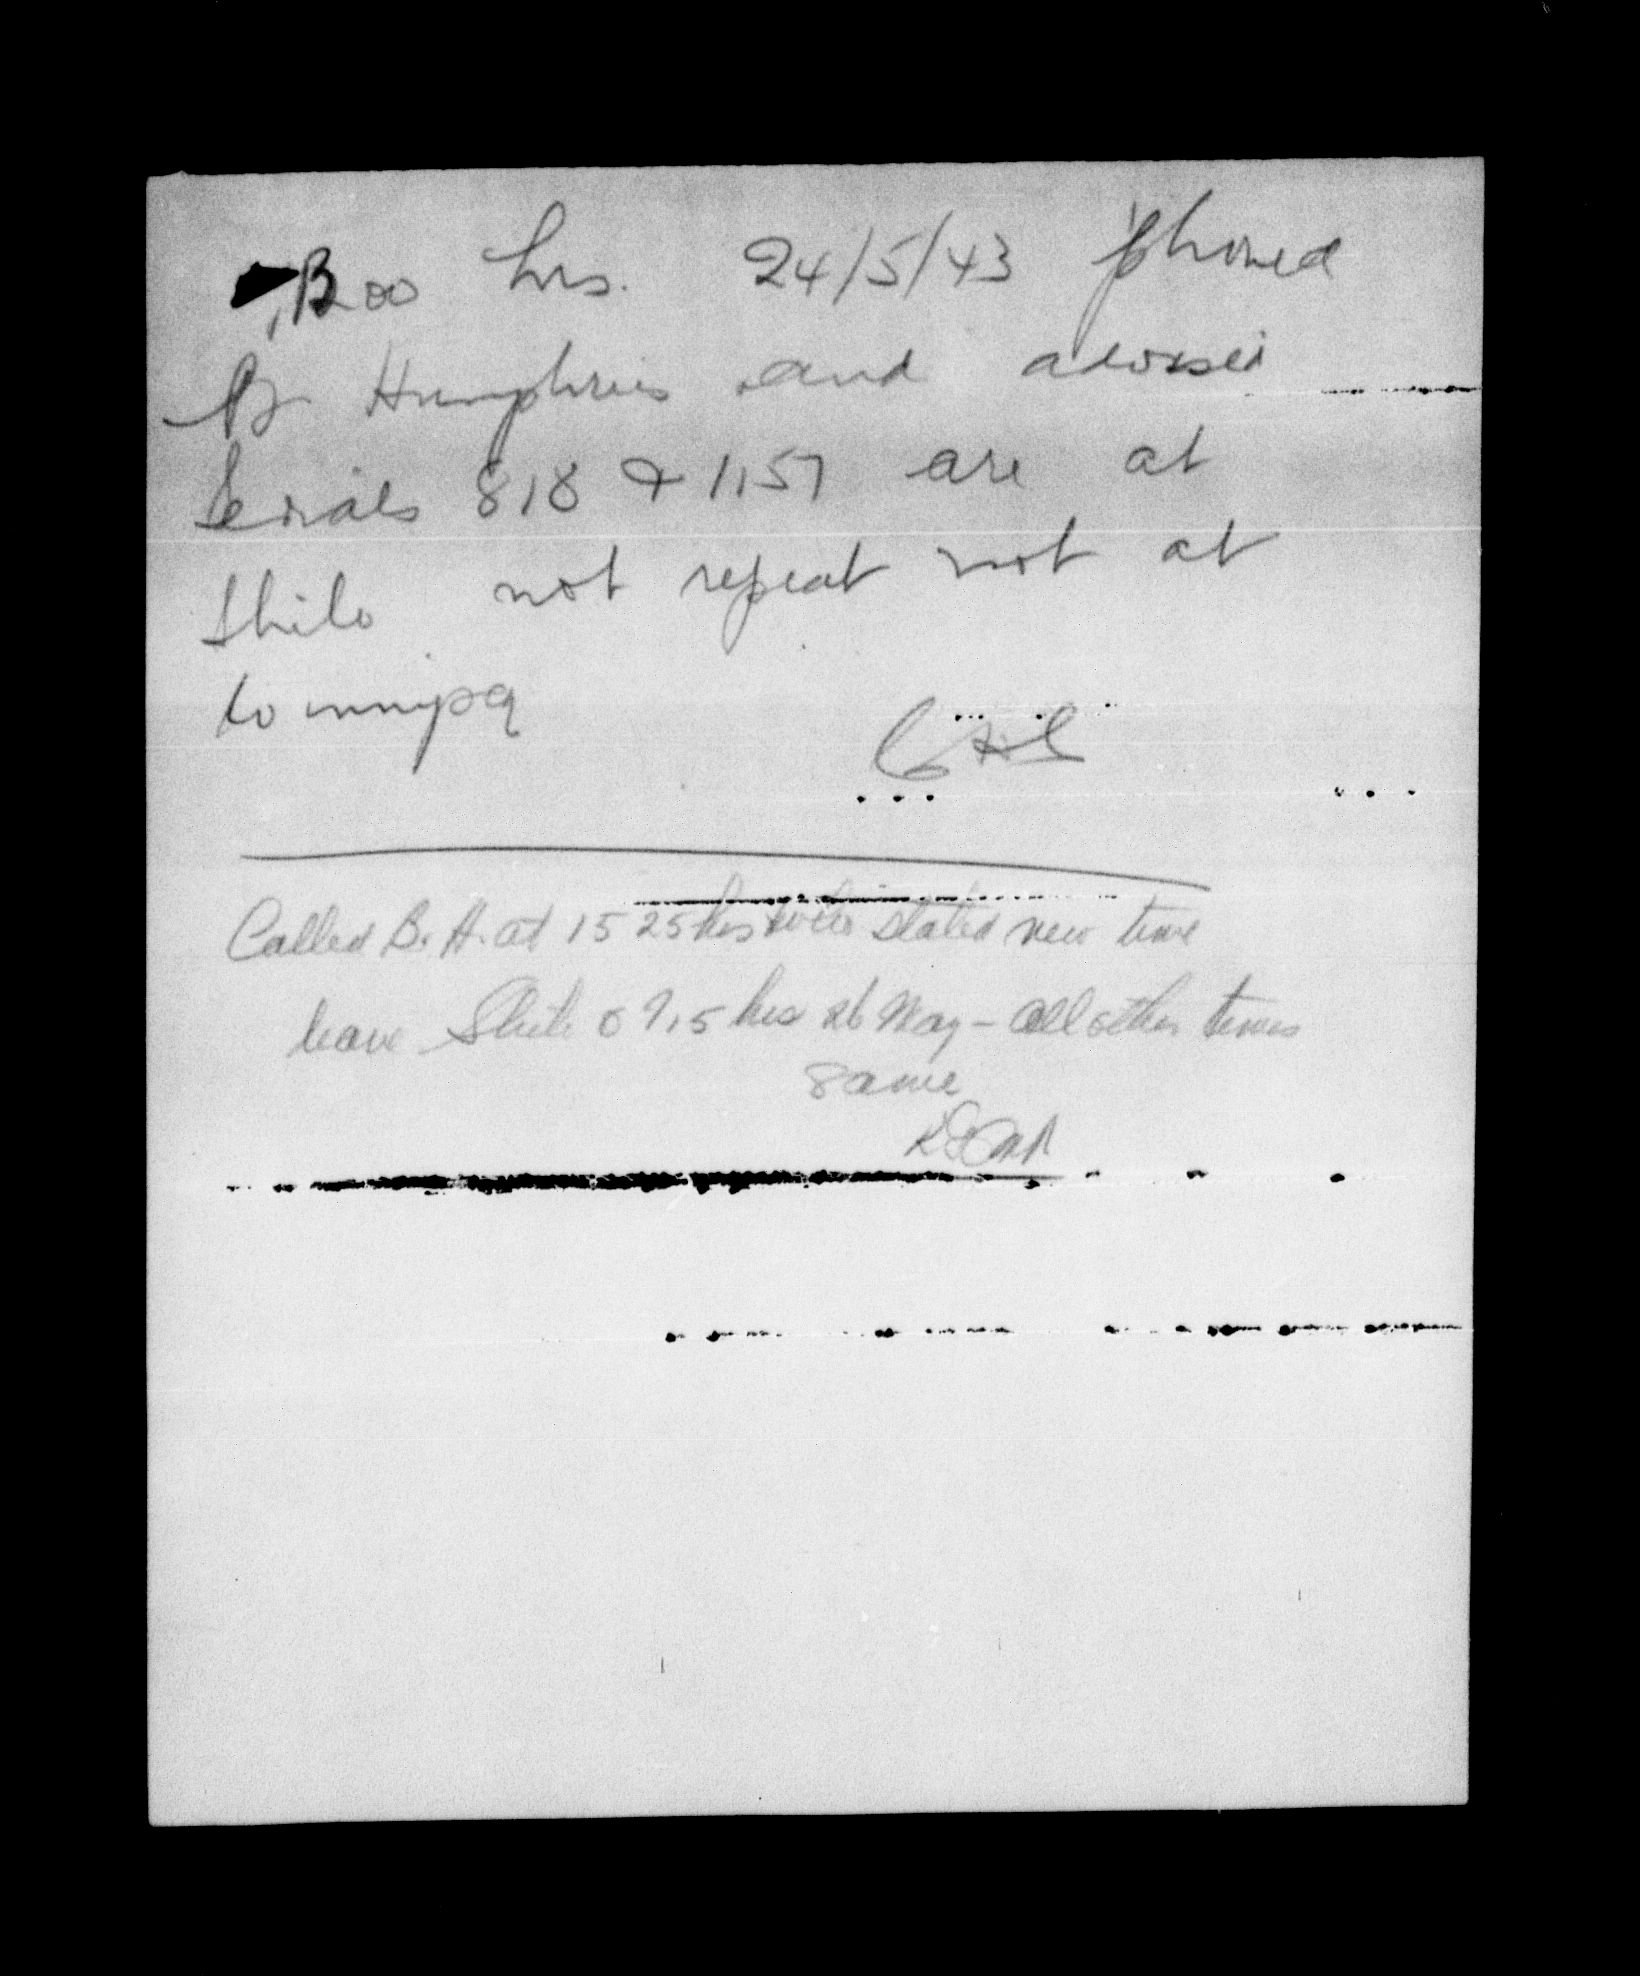 1300 hrs. 24/5/43 'phoned
B Humphries and advised
Serials 818 & 1157 are at
Shilo not repeat not at
Winnipeg
Called B. H. at 1525 hrs who stated new time
leave Shilo 0715 hrs 26 May - all other times
same